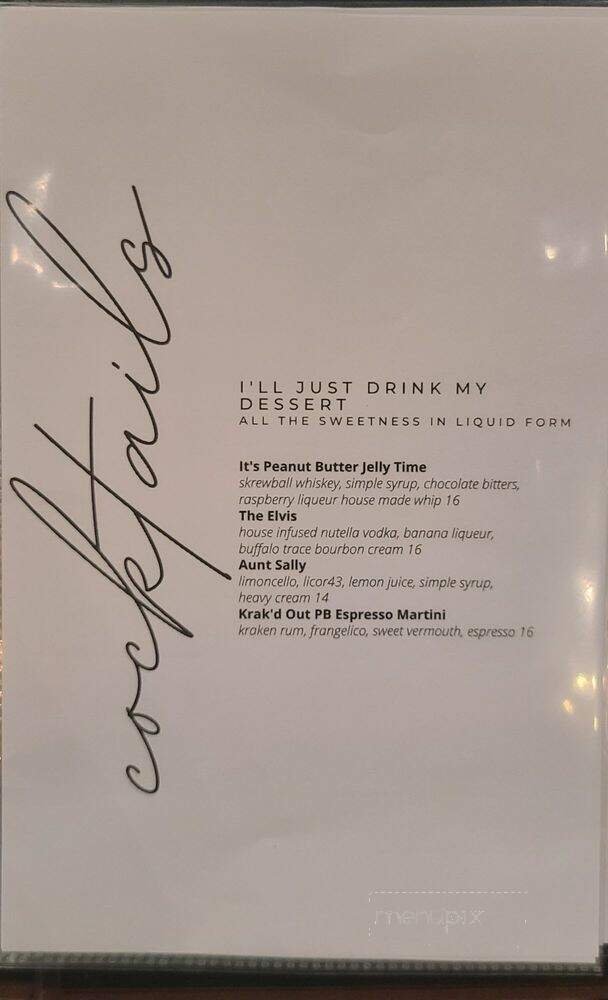 cocktails
I'LL JUST DRINK MY
DESSERT
ALL THE SWEETNESS IN LIQUID FORM
It's Peanut Butter Jelly Time
skrewball whiskey, simple syrup, chocolate bitters,
raspberry liqueur house made whip 16
The Elvis
house infused nutella vodka, banana liqueur,
buffalo trace bourbon cream 16
Aunt Sally
limoncello, licor43, lemon juice, simple syrup,
heavy cream 14
Krak'd Out PB Espresso Martini
kraken rum, frangelico, sweet vermouth, espresso 16
menupix